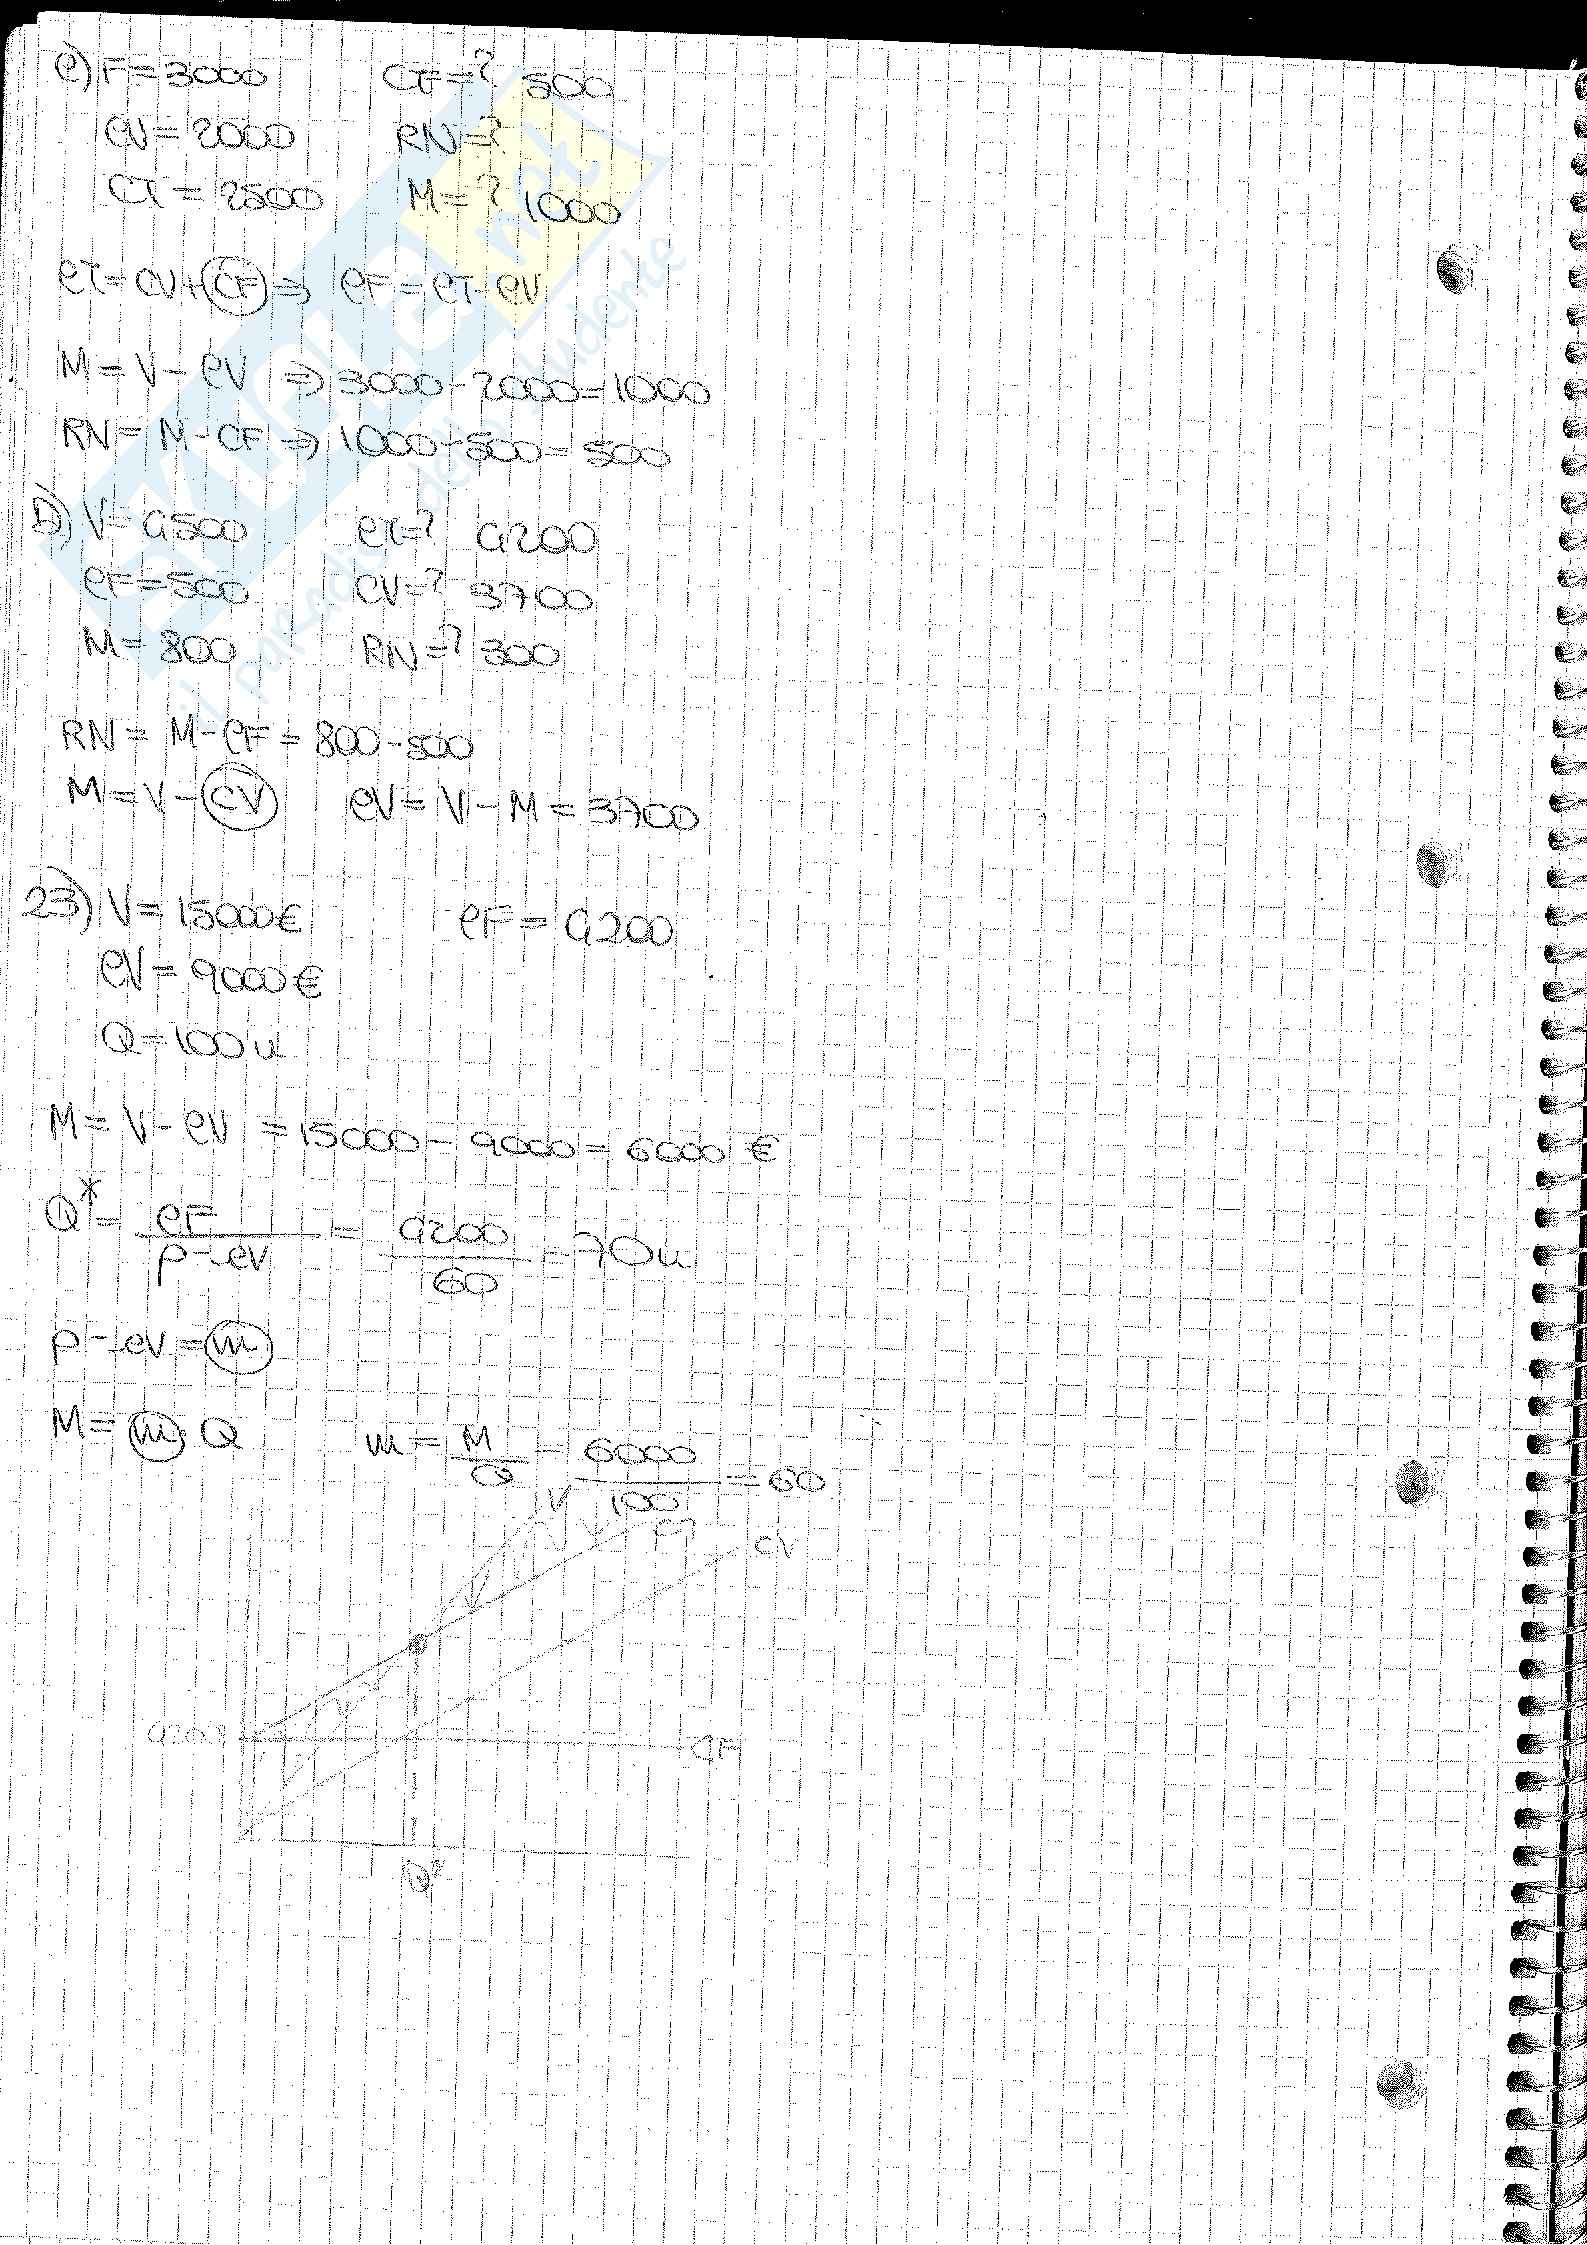 C) F = 3000 CF = ? 500
CV = 2000 RN = ?
CT = 2500 M = ? 1000
CT = CV + CF => CF = CT - CV
M = V - CV => 3000 - 2000 = 1000
RN = M - CF => 1000 - 500 = 500
D) V = 4500 CT = ? 4200
CF = 500 CV = ? 3700
M = 800 RN = ? 300
RN = M - CF = 800 - 500
M = V - CV CV = V - M = 3700
23) V = 15000 € CF = 4200
CV = 9000 €
Q = 100 u
M = V - CV = 15000 - 9000 = 6000 €
Q* = CF / p - cv = 4200 / 60 = 70 u
p - cv = m
M = m · Q m = M / Q = 6000 / 100 = 60
V CT CV
4200 CF
Q*